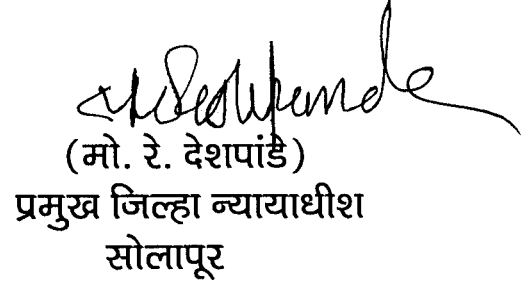 (मो. रे. देशपांडे)
प्रमुख जिल्हा न्यायाधीश
सोलापूर